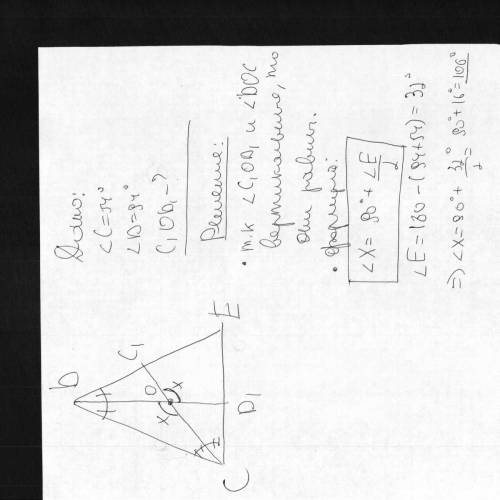 Дано:
∠C=54°
∠D=94°
C₁OD₁-?
Решение:
• т.к ∠C₁OD₁ и ∠DOC
вертикальные, то
они равны.
• формула:
∠X = 90° + ∠E/2
∠E=180-(94+54)=32°
=> ∠X=90°+ 32°/2 = 90°+16°=106°
D
C₁
O
x
x
C
D₁
E